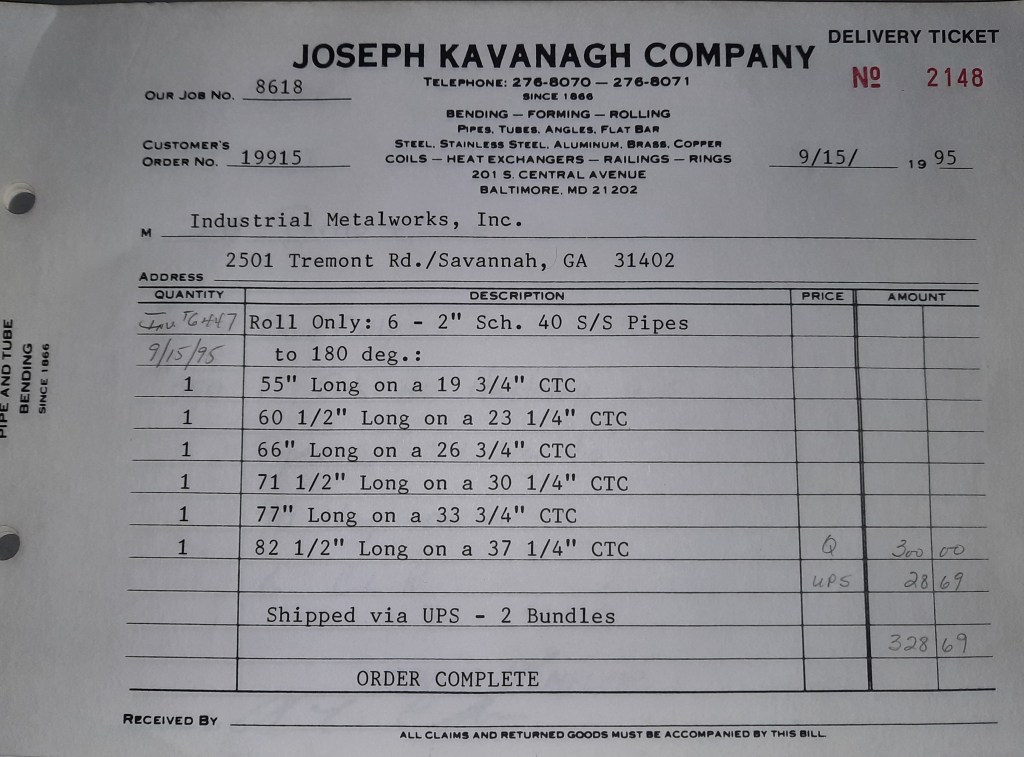 DELIVERY TICKET
JOSEPH KAVANAGH COMPANY
No 2148
TELEPHONE: 276-8070 — 276-8071
SINCE 1866
OUR JOB NO. 8618
BENDING — FORMING — ROLLING
PIPES, TUBES, ANGLES, FLAT BAR
STEEL, STAINLESS STEEL, ALUMINUM, BRASS, COPPER
COILS — HEAT EXCHANGERS — RAILINGS — RINGS
CUSTOMER'S
ORDER NO. 19915
9/15/ 19 95
201 S. CENTRAL AVENUE
BALTIMORE, MD 21202
M Industrial Metalworks, Inc.
ADDRESS 2501 Tremont Rd./Savannah, GA 31402
QUANTITY DESCRIPTION PRICE AMOUNT
Inv #6447 Roll Only: 6 - 2" Sch. 40 S/S Pipes
9/15/95 to 180 deg.:
1 55" Long on a 19 3/4" CTC
1 60 1/2" Long on a 23 1/4" CTC
1 66" Long on a 26 3/4" CTC
1 71 1/2" Long on a 30 1/4" CTC
1 77" Long on a 33 3/4" CTC
1 82 1/2" Long on a 37 1/4" CTC Q 300 00
UPS 28 69
Shipped via UPS - 2 Bundles
328 69
ORDER COMPLETE
RECEIVED BY
ALL CLAIMS AND RETURNED GOODS MUST BE ACCOMPANIED BY THIS BILL
PIPE AND TUBE
BENDING
SINCE 1866